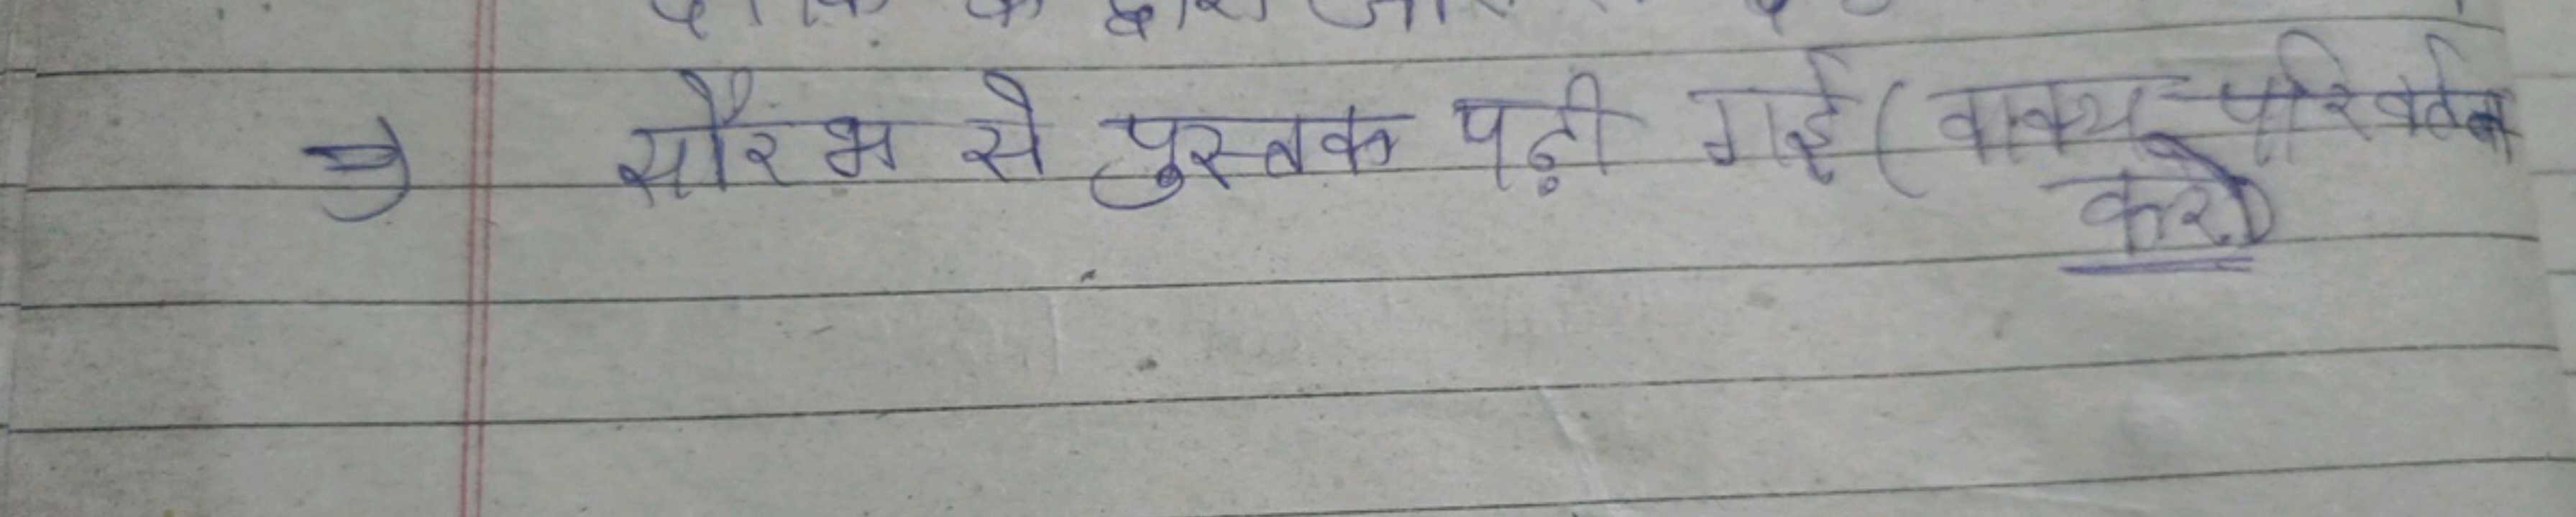 के द्वारा
सौरभ से पुस्तक पढ़ी गई (वाक्य परिवर्तन
करो)